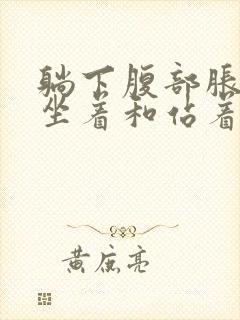 躺下腹部脹
坐着和佔着
黄庶亮